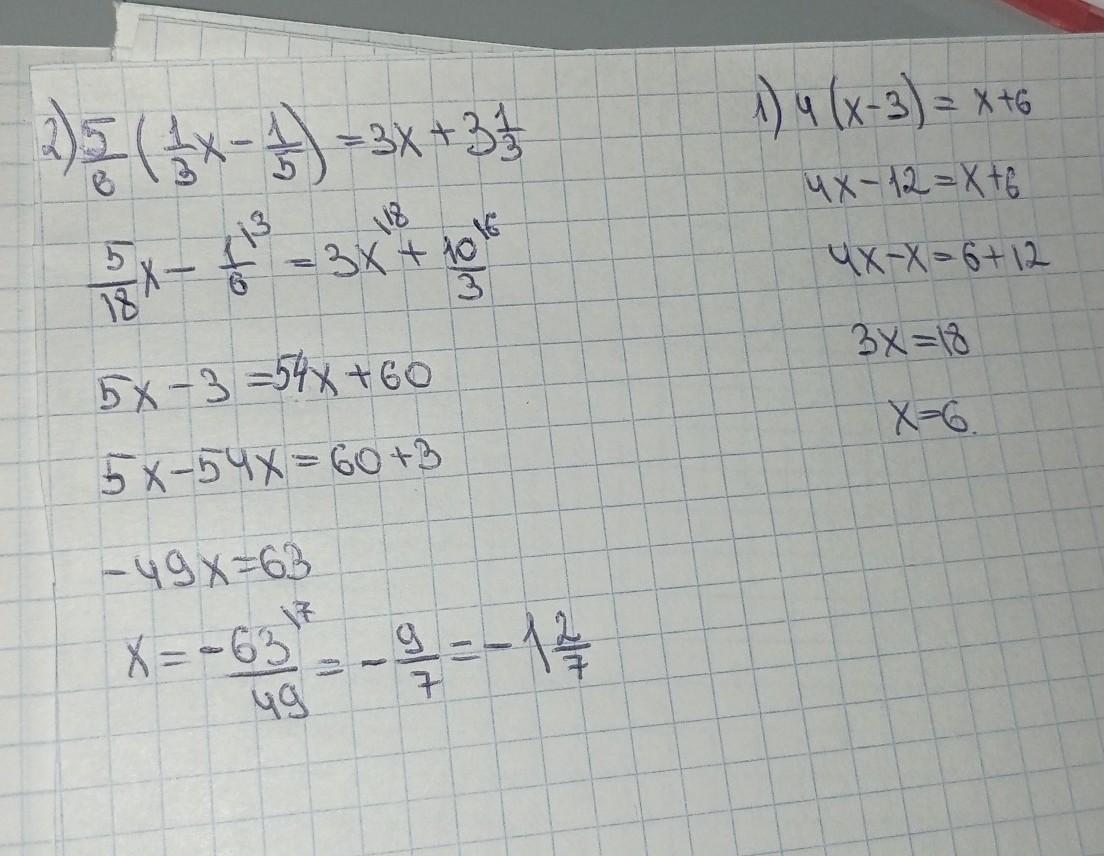 2) 5/6 (1/3 x - 1/5) = 3x + 3 1/3
5/18 x - 1/6 \3 = 3x \18 + 10/3 \6
5x - 3 = 54x + 60
5x - 54x = 60 + 3
-49x = 63
x = -63/49 \7 = -9/7 = -1 2/7
1) 4 (x - 3) = x + 6
4x - 12 = x + 6
4x - x = 6 + 12
3x = 18
x = 6.